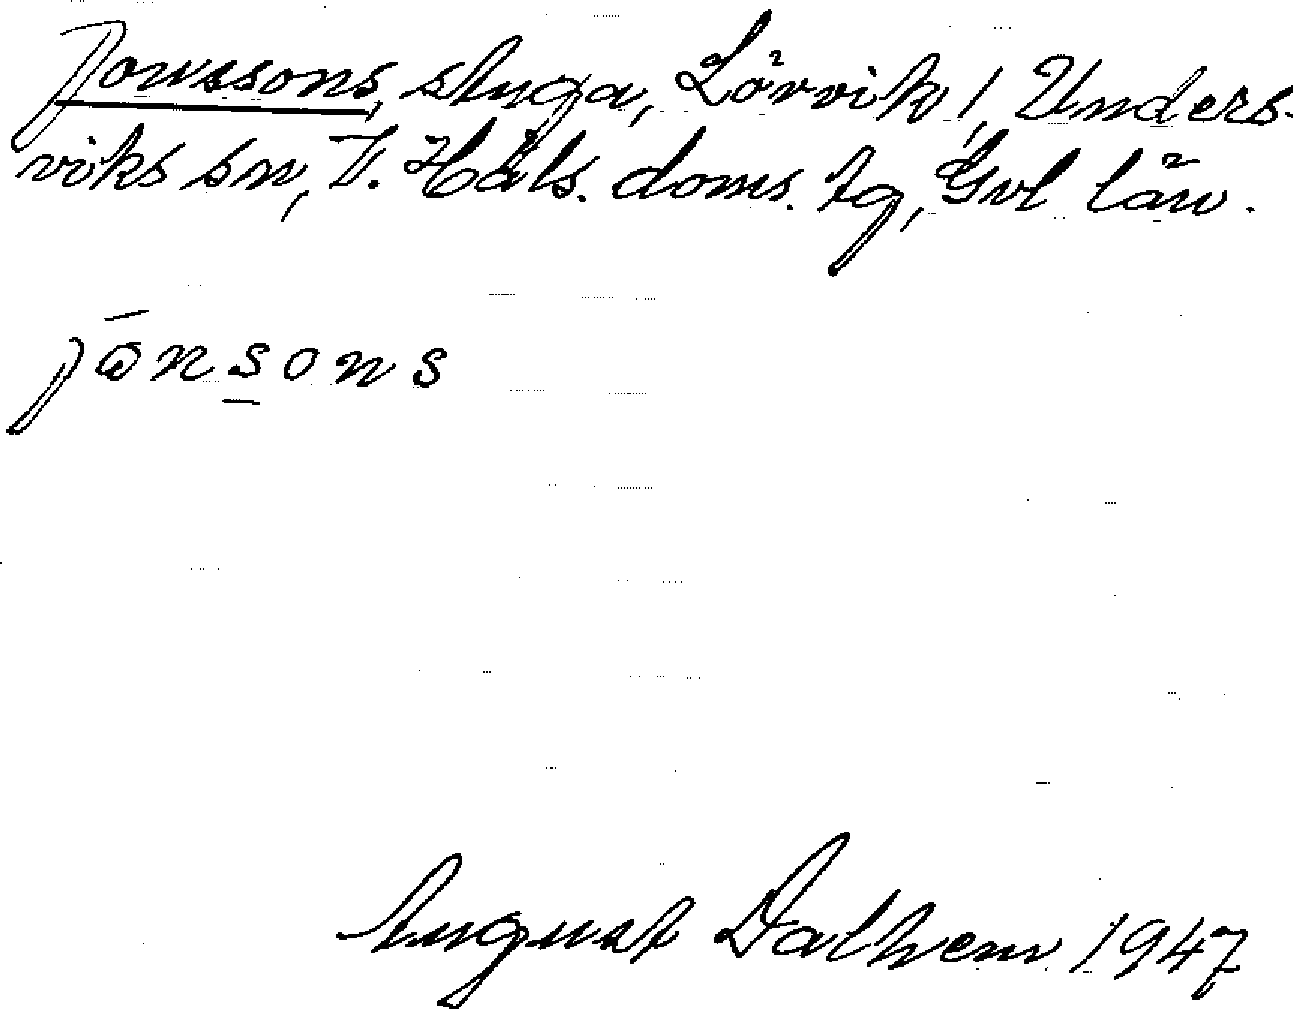 Jonssons, stuga, Lörvik, 1, Unders-
viks sn, V. Häls. doms. tg, Gvl län.
jōnsons
August Dalhem 1947